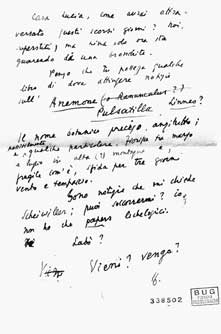 Cara Lucia, come avrai attra-
versato questi scorsi giorni? noi,
superstiti) ma Nina solo ora sta
guarendo da una bronchite.
Penso che tu possa qualche
libro di dove attingere notizie
sull' Anemone (o Ranunculus??)
Pulsatilla Linneo?
Il nome botanico preciso, anzitutto;
e qualche particolare. Fiorisce tra marzo
e luglio in alta (?) montagna e,
fragile com'è, sfida per tre giorni
vento e tempeste.
Sono notizie che mi chiede
Scheiwiller; può soccorrermi? io,
non ho che papers
Sabò?
Vieni? vengo?
338502
BUG